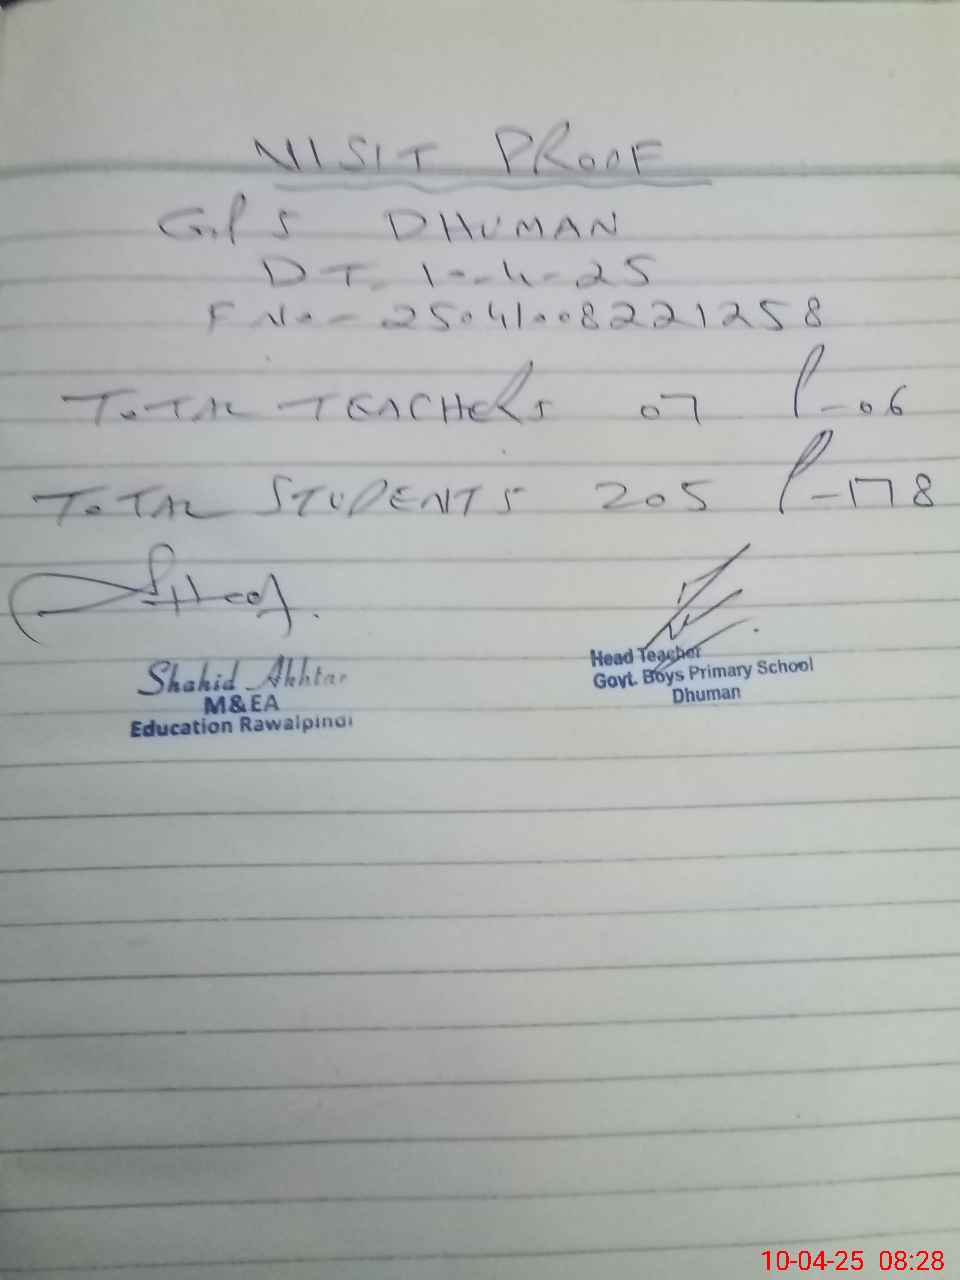 VISIT PROOF
G.P S DHUMAN
DT. 10-4-25
F No- 25041008221258
TOTAL TEACHERS 07 P-06
TOTAL STUDENTS 205 P-178
Shahid Akhtar
M&EA
Education Rawalpindi
Head Teacher
Govt. Boys Primary School
Dhuman
10-04-25 08:28